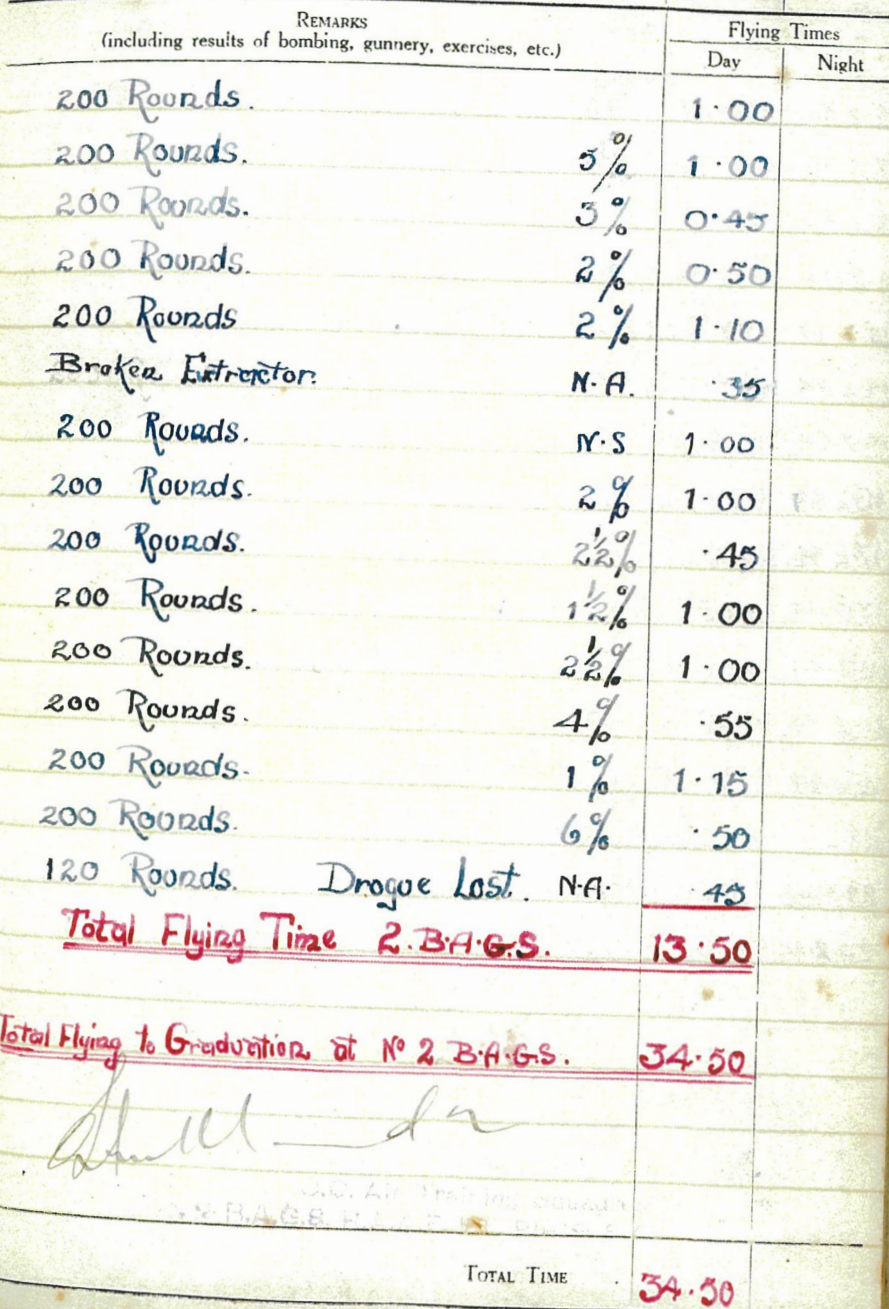 REMARKS
(including results of bombing, gunnery, exercises, etc.)
Flying Times
Day Night
200 Rounds. 1·00
200 Rounds. 5% 1·00
200 Rounds. 3% 0·45
200 Rounds. 2% 0·50
200 Rounds 2% 1·10
Broken Extractor. N.A. ·35
200 Rounds. N.S 1·00
200 Rounds. 2% 1·00
200 Rounds. 2½% ·45
200 Rounds. 1½% 1·00
200 Rounds. 2½% 1·00
200 Rounds. 4% ·55
200 Rounds. 1% 1·15
200 Rounds. 6% ·50
120 Rounds. Drogue Lost. N.A. 45
Total Flying Time 2.B.A.G.S. 13·50
Total Flying to Graduation at No 2 B.A.G.S. 34·50
TOTAL TIME . 34·50